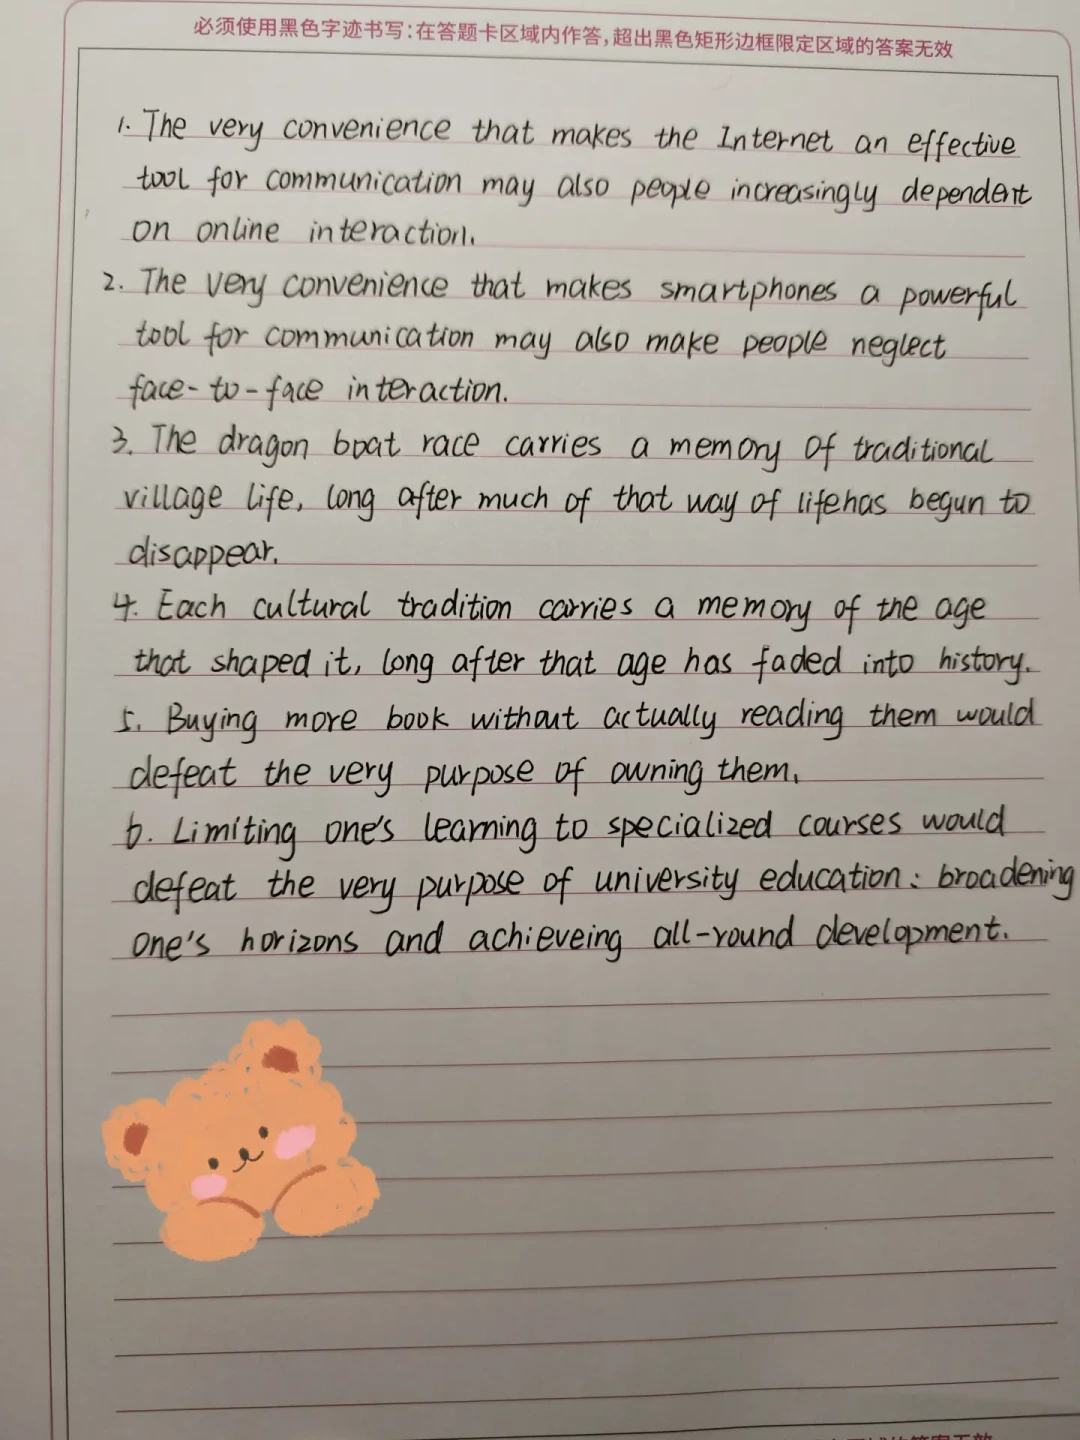 必须使用黑色字迹书写:在答题卡区域内作答,超出黑色矩形边框限定区域的答案无效
1. The very convenience that makes the Internet an effective
tool for communication may also people increasingly dependent
on online interaction.
2. The very convenience that makes smartphones a powerful
tool for communication may also make people neglect
face-to-face interaction.
3. The dragon boat race carries a memory of traditional
village life, long after much of that way of life has begun to
disappear.
4. Each cultural tradition carries a memory of the age
that shaped it, long after that age has faded into history.
5. Buying more book without actually reading them would
defeat the very purpose of owning them.
6. Limiting one's learning to specialized courses would
defeat the very purpose of university education: broadening
one's horizons and achieveing all-round development.